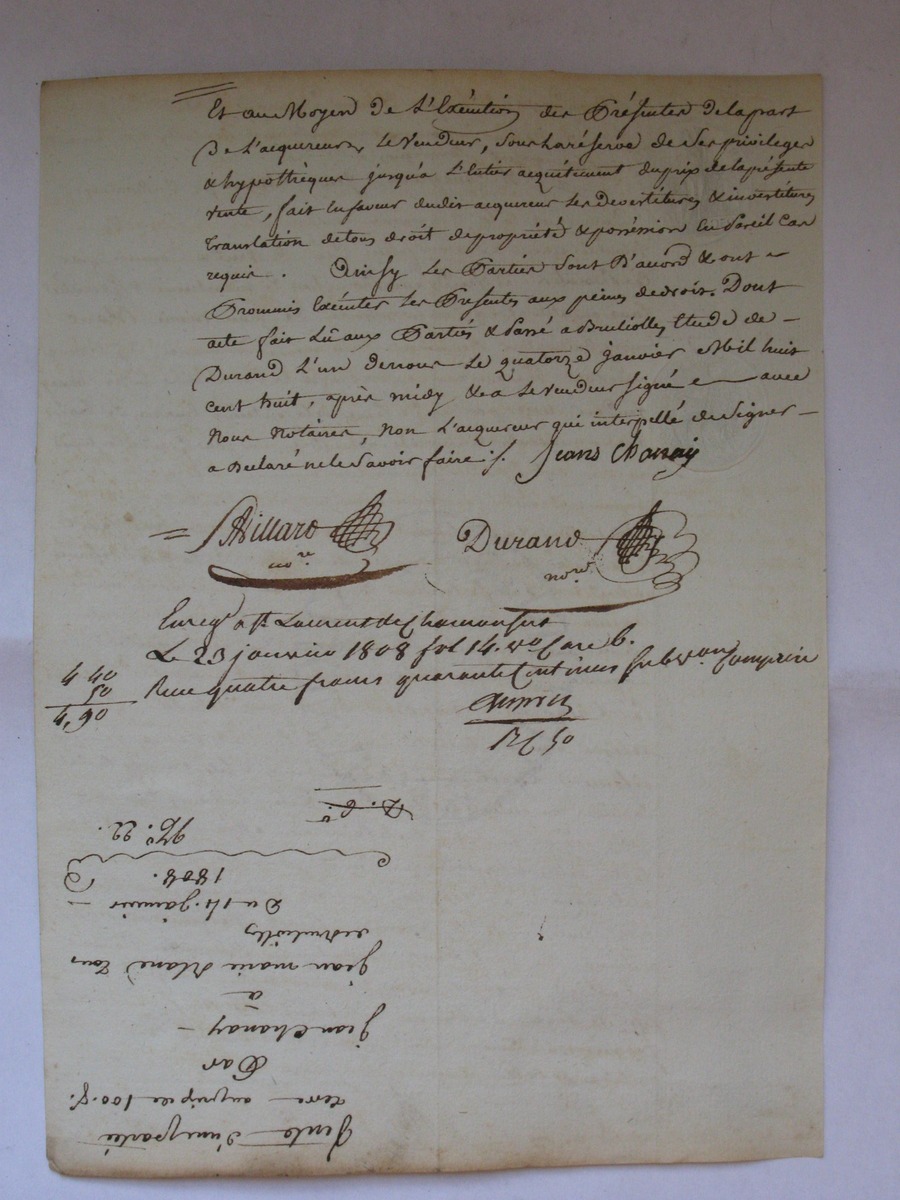 Et au Moyen de L'Exécution des Présentes de la part
de L'acquereur, Le Vendeur, sous la réserve de ses privileges
& hypothèques jusqu'à L'entier acquittement du prix de la présente
vente, fait en faveur dudit acquereur les devestitures & investitures
translation de tous droit de propriété & possession en Pareil Cas
requis. Ainsy Les Parties sont D'accord & ont
Promis Exécuter Les Presentes aux peines de droit. Dont
acte fait Lû aux Parties & Passé a Brulliolles Etude de
Durand L'un de nous Le quatorze janvier Mil huit
cent huit, après midy & a Le Vendeur signé avec
Nous Notaires, Non L'acquereur qui interpellé de signer
a declaré ne le savoir faire ./. Jean Chanay
Villard Durand
no.re no.re
Enreg. a St. Laurent de Chamousset
Le 23 janvier 1808 fol 14. v.o Case 6.
4 40 Recu quatre francs quarante Centimes subv.on Comprise
50
4,90
Vente d'une partie
terre au prix de 100. f.
Par
jean Chanay
à
jean marie Blanc tous
de Brulliolles
Du 14. janvier
1808.
N.o 22.